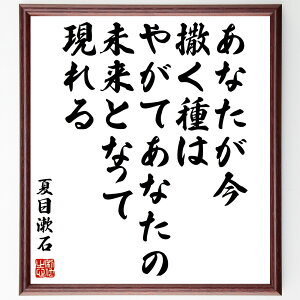 あなたが今
撒く種は
やがてあなたの
未来となって
現れる
夏目漱石